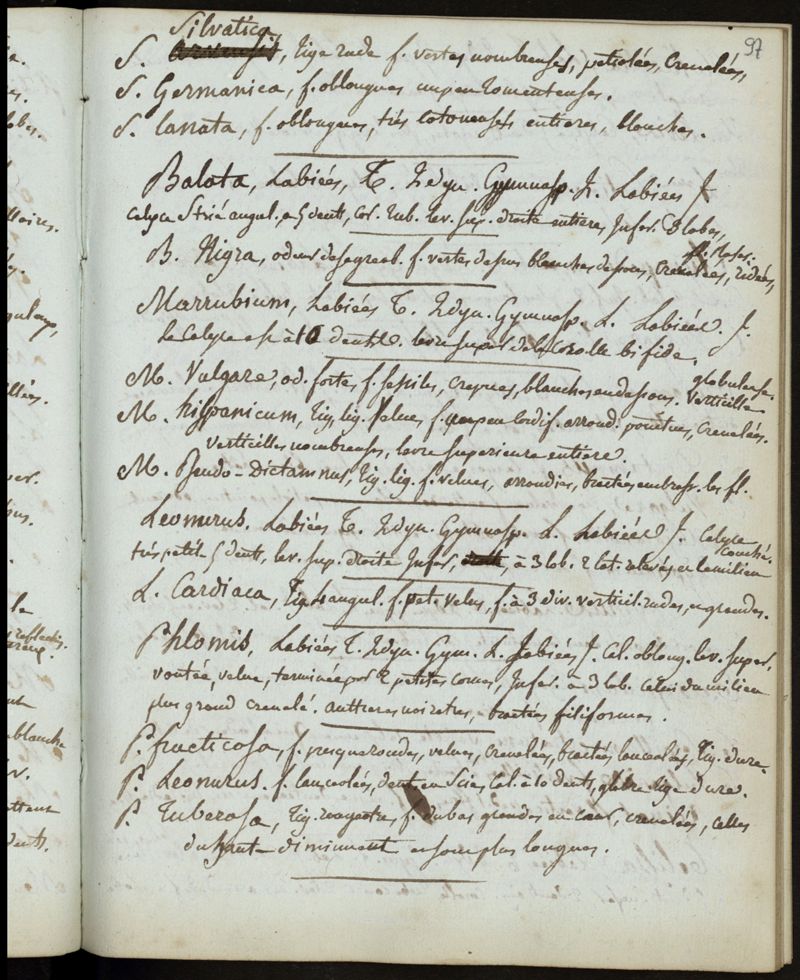 97
Silvatica
S. , tige rude f. vertes nombreuses, petiolées, Crenelées,
S. Germanica, f. oblongues un peu tomenteuses.
S. lanata, f. oblongues, très cotoneuses entieres, blanches.
Balota, Labiées, T. Didyn. Gymnosp. L. Labiées J.
calyce Strié angul. a 5 dent, cor. tub. lev. sup. droite entiere, Infer. 3 lobes,
fl. Roses.
B. Nigra, odeur desagreab. f. vertes dessus blanches dessous, crenelées, ridées,
Marrubium, Labiées T. Didyn. Gymnosp. L. Labiées. J.
le Calyce est à 10 dents. levre super. de la Corolle bifide.
globuleuse.
M. Vulgare, od. forte, f. sessiles, crepues, blanches en dessous. Verticille
M. hispanicum, tig. lig. velue, f. un peu cordif. arrond. pointues, Crenelées.
verticilles nombreuses, levre superieure entiere.
M. Pseudo-Dictamnus, tig. lig. f. velues, arrondies, bractées embrass. les fl.
Leonurus. Labiées T. Didyn. Gymnosp. L. Labiées J. Calyce
couché.
très petit 5 dent, lev. sup. droite Infer. à 3 lob. 2 lat. relevés et le milieu
L. Cardiaca, Tig. 4 angul. f. pet. velus, f. à 3 div. verticil. rudes, et grandes.
Phlomis, Labiées T. Didyn. Gym. L. Labiées J. Cal. oblong. lev. super.
voutée, velue, terminée par 2 petites cornes, Infer. à 3 lob. Celui du milieu
plus grand crenelé. antheres noiratres, bractées filiformes.
P. fructicosa, f. presque rondes, velues, crenelées, bractés lanceolés, tig. dure.
P. Leonurus. f. lanceolées, dent. en Scie, Cal. à 10 dents, glabre tige dure.
P. Tuberosa, Tig. f. du bas grandes en cœur, crenelées, celles
du haut diminuent et sont plus longues.